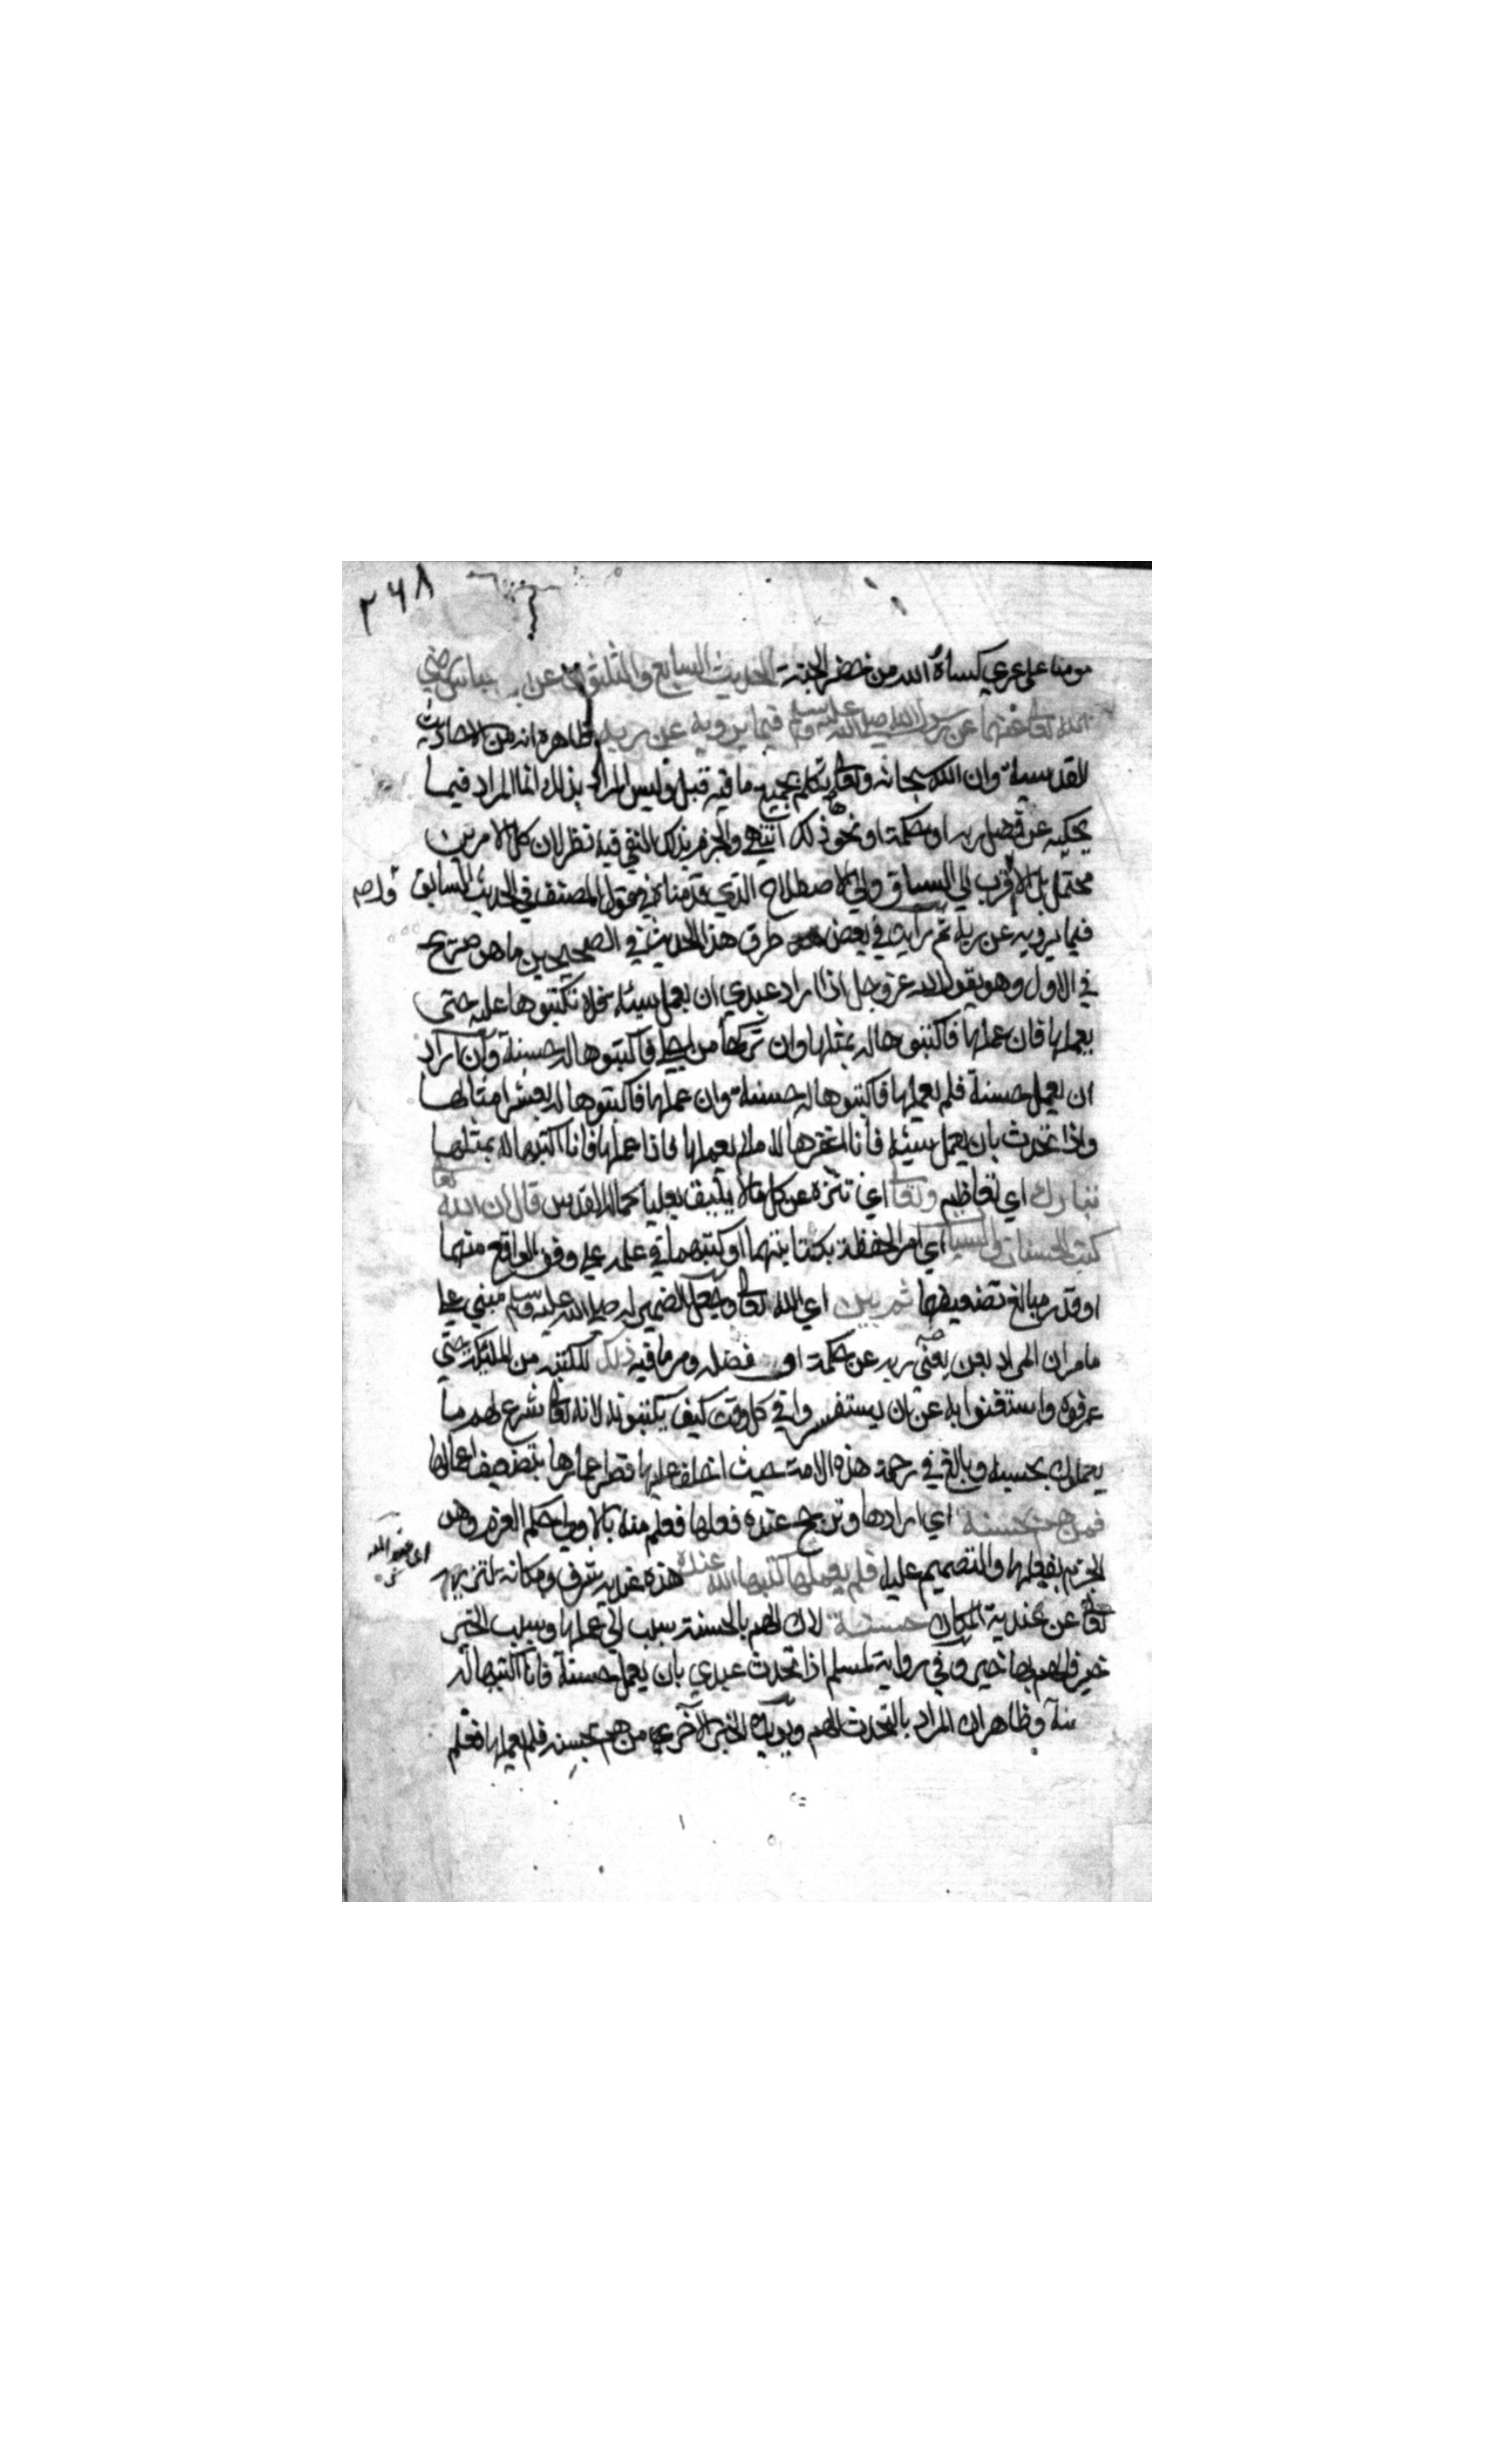 ٢٦٨
مومنا على عري كساه الله من خضر الجنة الحديث السابع والثلثون عن عباس رضي
الله تعا عنهما عن رسول الله صلى الله عليه وسلم فيما يرويه عن ربه ظاهره انه من الاحاديث
القدسية وان الله سبحانه وتعالى تكلم بجميع ما فيه قبل وليس المراد بذلك انما المراد فيما
يحكيه عن فضل ربه او حكمه او نحو ذلك انتهى والجزم بذلك النفي فيه نظر لان كلا الامرين
محتمل بل الاقرب الي السياق والي الاصطلاح الذي قدمناه في قول المصنف في الحديث السابق
فيما يرويه عن ربه ثم رايت في بعض طرق هذا الحديث في الصحيحين ما هو صريح
في الاول وهو يقول الله عز وجل اذا اراد عبدي ان يعمل سيئة فلا تكتبوها عليه حتى
يعملها فان عملها فاكتبوها له بمثلها وان تركها من اجلي فاكتبوها له حسنة وان اراد
ان يعمل حسنة فلم يعملها فاكتبوها له حسنة وان عملها فاكتبوها له بعشر امثالها
واذا تحدث بان يعمل سيئة فانا اغفرها له ما لم يعملها فاذا عملها فانا اكتبها له بمثلها
تبارك اي تعاظم وتعا اي تنزه عن كل ما لا يليق بعليا كماله القدس قال ان الله تعا
كتب الحسنات والسيئات اي امر الحفظة بكتابتهما او كتبهما في علمه علي وفق الواقع منهما
او قدر مبالغ تضعيفها ثم بين اي الله تعالى وجعل الضمير له صلى الله عليه وسلم مبني علي
ما مر ان المراد بعن يعني ربه عن حكمه او فضله ومر ما فيه ذلك للكتبة من الملئكة حتي
عرفوه واستغنوا به عن ان يستفسروا في كل وقت كيف يكتبونه لانه تعالى شرع لهم ما
يعملون بحسبه وبالغ في رحمة هذه الامة حيث اخلف عليها قصر اعمارها بتضعيف اعمالها
فمن هم بحسنة اي ارادها وترجح عنده فعلها فعلم منه بالاولي حكم العزم وهو
الجزم بفعلها والتصميم عليها فلم يعملها كتبها الله عنده هذه عندية شرف ومكانة لتنزيهه
تعالى عن عندية المكان حسنة لان الهم بالحسنة سبب الي عملها وسبب الخير
خير فالهم بها خير وفي رواية لمسلم اذا تحدث عبدي بان يعمل حسنة فانا اكتبها له
حسنة وظاهر ان المراد بالتحدث الهم ويؤيده الخبر الآخر من هم بحسنة فلم يعملها فعلم